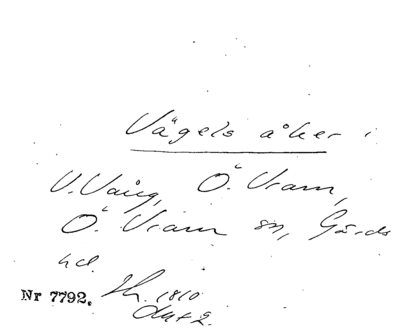 Vägels åker i
V. Vång, Ö. Vram,
Ö. Vram sn, Gärds
hd.
Nr 7792. Sk. 1810
akt 2.